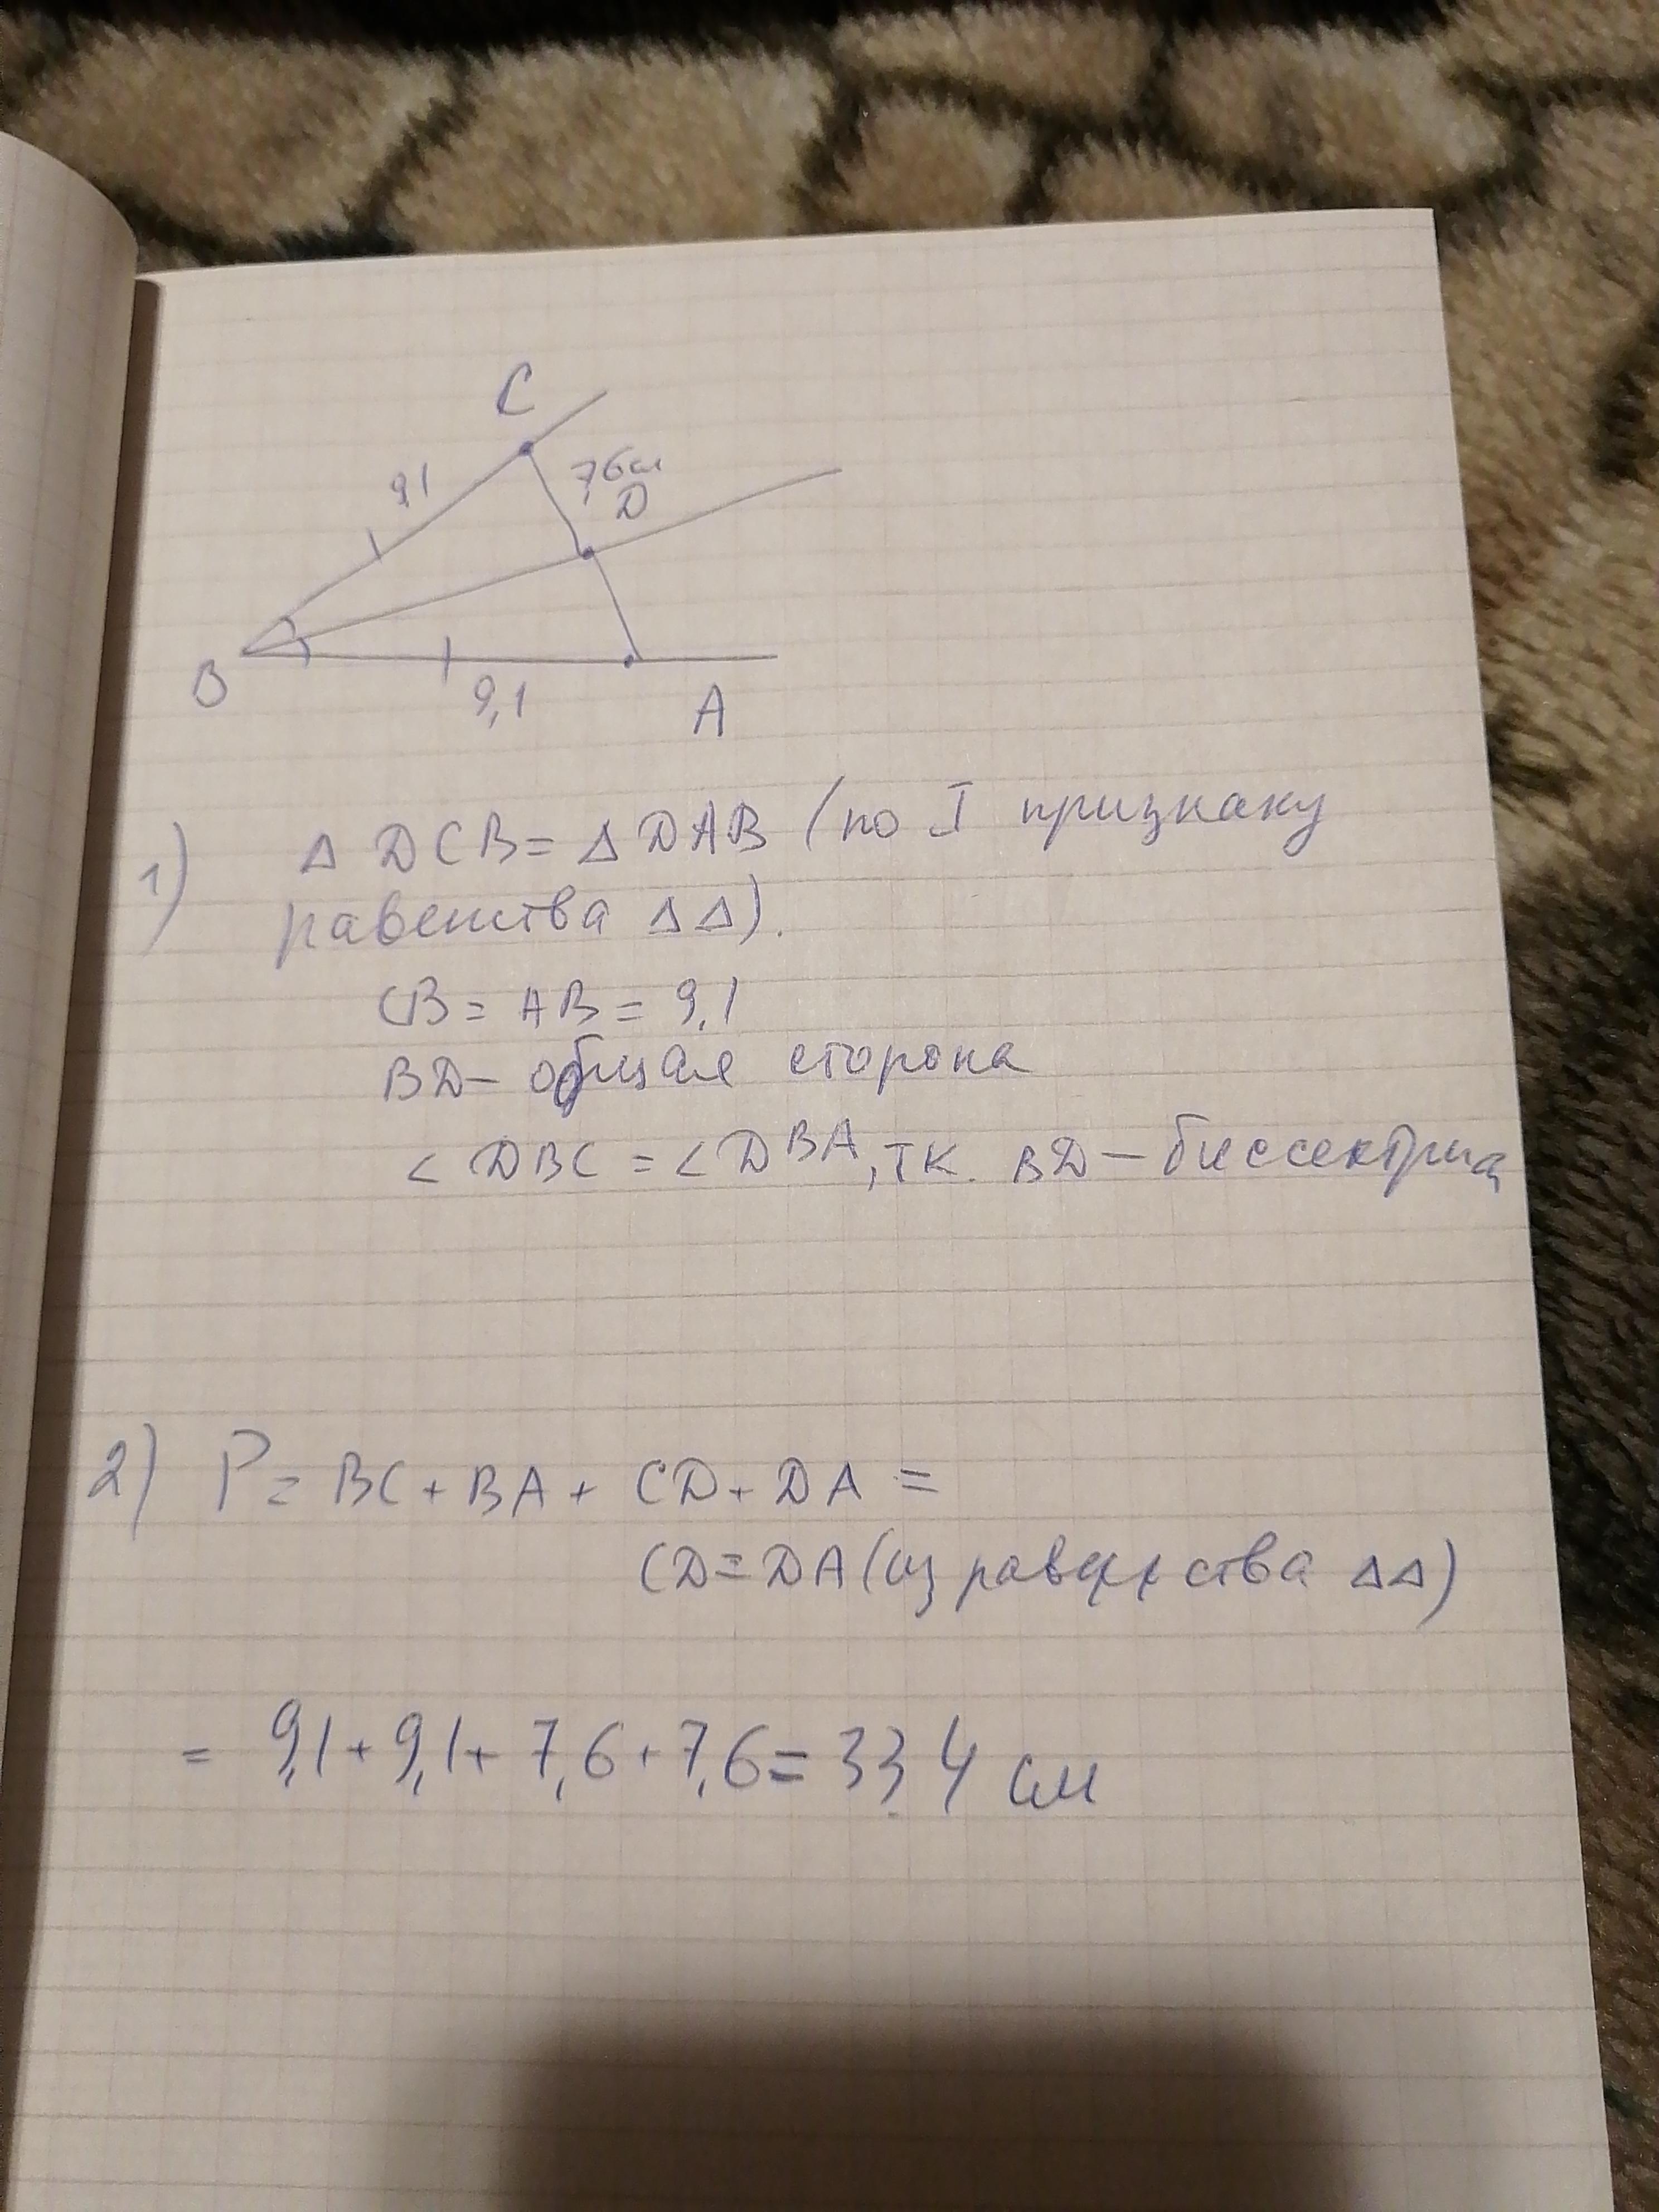 C
9,1
7,6см
D
B
9,1
A
1) Δ DCB = Δ DAB (по I признаку
равенства ΔΔ).
CB = AB = 9,1
BD - общая сторона
∠ DBC = ∠ DBA, тк. BD - биссектриса
2) P = BC + BA + CD + DA =
CD = DA (из равенства ΔΔ)
= 9,1 + 9,1 + 7,6 + 7,6 = 33,4 см